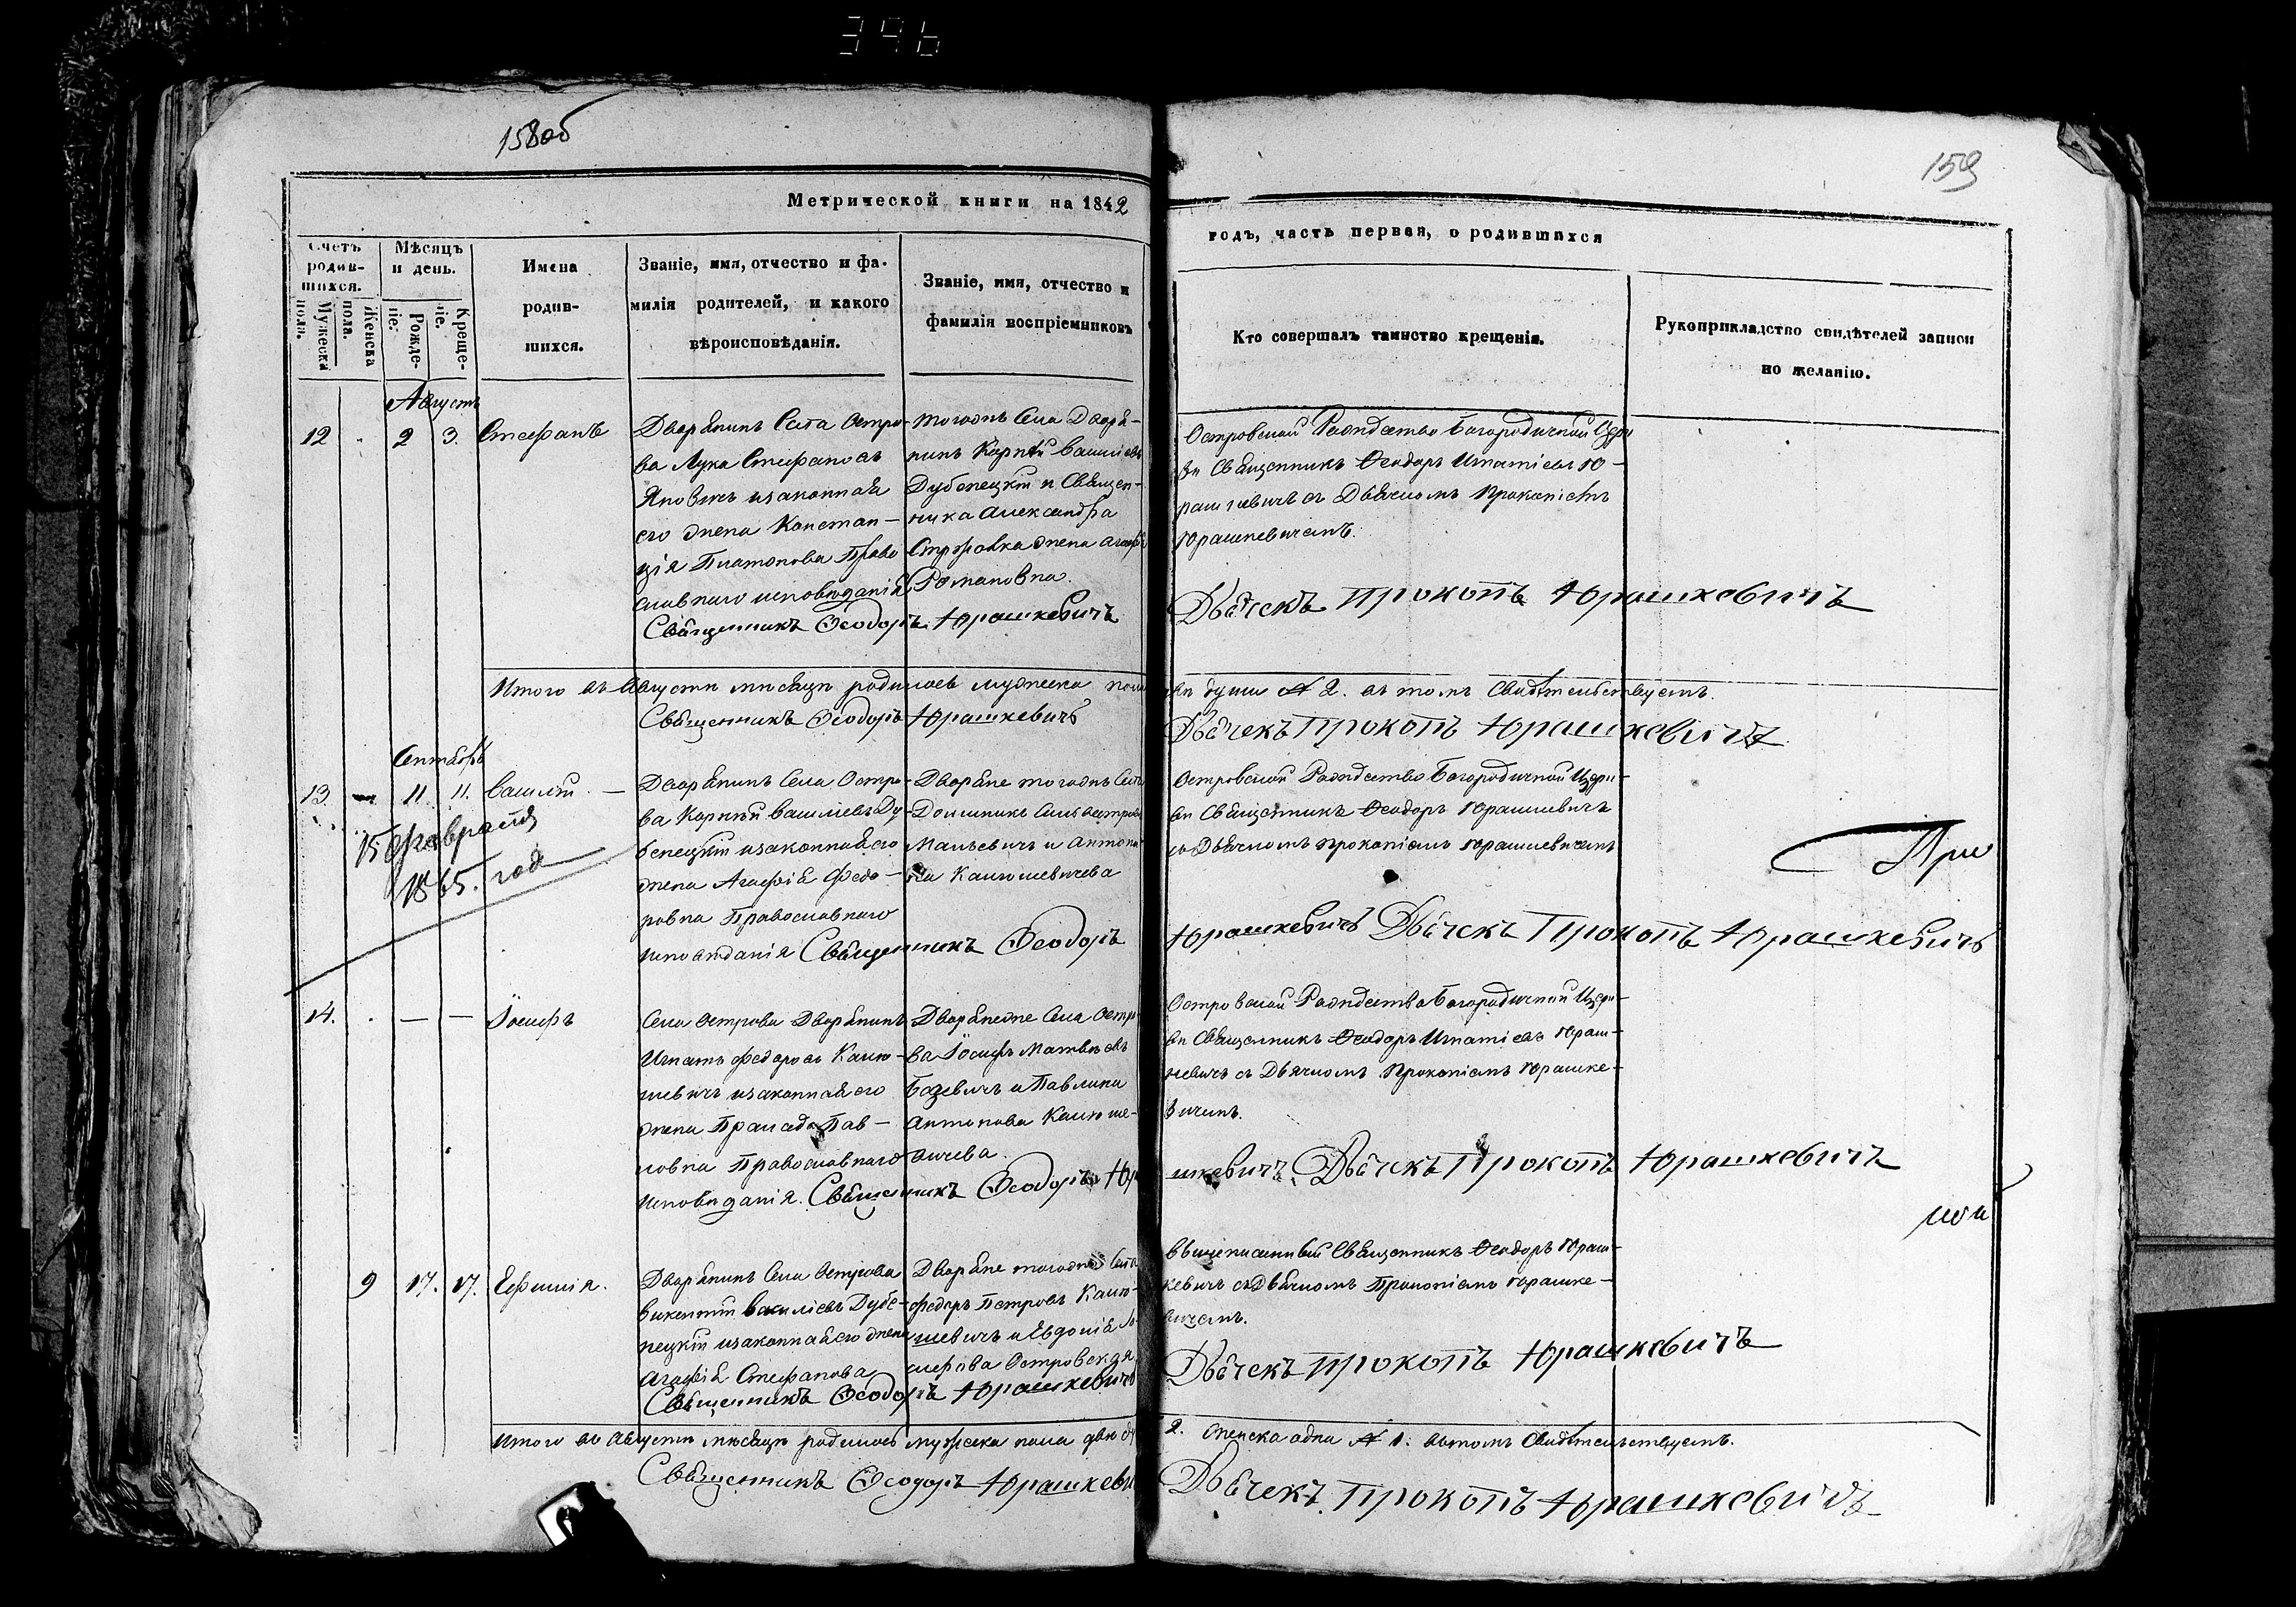 396
158об
159
Метрической книги на 1842
годъ, часть первая, о родившихся
Счетъ родив-шихся.
Мужеска пола.
Женска пола.
Мѣсяцъ и день.
Рожде-ніе.
Креще-ніе.
Имена
родив-
шихся.
Званіе, имя, отчество и фа-
милія родителей, и какого
вѣроисповѣданія.
Званіе, имя, отчество и
фамилія воспріемниковъ
Кто совершалъ таинство крещенія.
Рукоприкладство свидѣтелей записи
по желанію.
Августъ
12 2 3. Стефанъ
Дворянинъ Села Остро-
ва Лука Стефановъ
изаконная
его жена Констан-
ція Платонова Право
славнаго исповѣданія
тогожъ Села Дворя-
нинъ Корнѣй Василіевъ
Дубенецкій и Священ-
ника Александра
жена
Романовна.
Священникъ Ѳеодоръ Юрашкевичъ
Островской Рождество Богородичной Церк
ви Священникъ Ѳеодоръ Игнатіевъ Ю-
рашкевичъ съ Дьячкомъ Прокопіемъ
Юрашкевичемъ.
Дьячекъ Прокопъ Юрашкевичъ
Итого въ Августѣ мѣсяцѣ родилось мужеска пола
двѣ души № 2. въ томъ Свидѣтельствуемъ.
Священникъ Ѳеодоръ Юрашкевичъ
Дьячекъ Прокопъ Юрашкевичъ
Сентябрь
13. 11. 11. Василій
15 февраля
1865. год
Дворянинъ Села Остро-
ва Корнѣй Василіевъ Ду-
бенецкій изаконная его
жена Агафія Федо-
ровна Православнаго
исповѣданія
Дворяне тогожъ Села
Малевичъ и Антони
на Калюшевичева
Священникъ Ѳеодоръ
Островской Рождество Богородичной Церк-
ви Священникъ Ѳеодоръ Юрашкевичъ
съ Дьячкомъ Прокопіемъ Юрашкевичемъ
При
Юрашкевичъ Дьячекъ Прокопъ Юрашкевичъ
14. — — Іосифъ
Села Острова Дворянинъ
Игнатъ Федоровъ Калю-
шевичъ изаконная его
жена Пав-
ловна Православнаго
исповѣданія.
Дворянежъ Села Остро
ва Іосифъ Матвѣевъ
Базевичъ и Павлина
Антонова Калюше-
вичева.
Священникъ Ѳеодоръ Юра
Островской Рождество Богородичной Церк-
ви Священникъ Ѳеодоръ Игнатіевъ Юраш-
кевичъ съ Дьячкомъ Прокопіемъ Юрашке-
вичемъ.
шкевичъ. Дьячекъ Прокопъ Юрашкевичъ
9 17. 17. Ефимія.
Дворянинъ Села Острова
Викентій Василіевъ Дубе-
нецкій изаконная его жена
Агафія Стефанова
Дворяне тогожъ Села
Федоръ Петровъ Калю-
шевичъ и Евдокія
Островская
Священникъ Ѳеодоръ Юрашкевичъ
Вышеписанный Священникъ Ѳеодоръ Юраш-
кевичъ съ Дьячкомъ Прокопіемъ Юрашке-
вичемъ.
Дьячекъ Прокопъ Юрашкевичъ
Итого въ Августѣ мѣсяцѣ родилось мужеска пола двѣ
2. Женска одна № 1. въ томъ Свидѣтельствуемъ.
Священникъ Ѳеодоръ Юрашкеви
Дьячекъ Прокопъ Юрашкевичъ